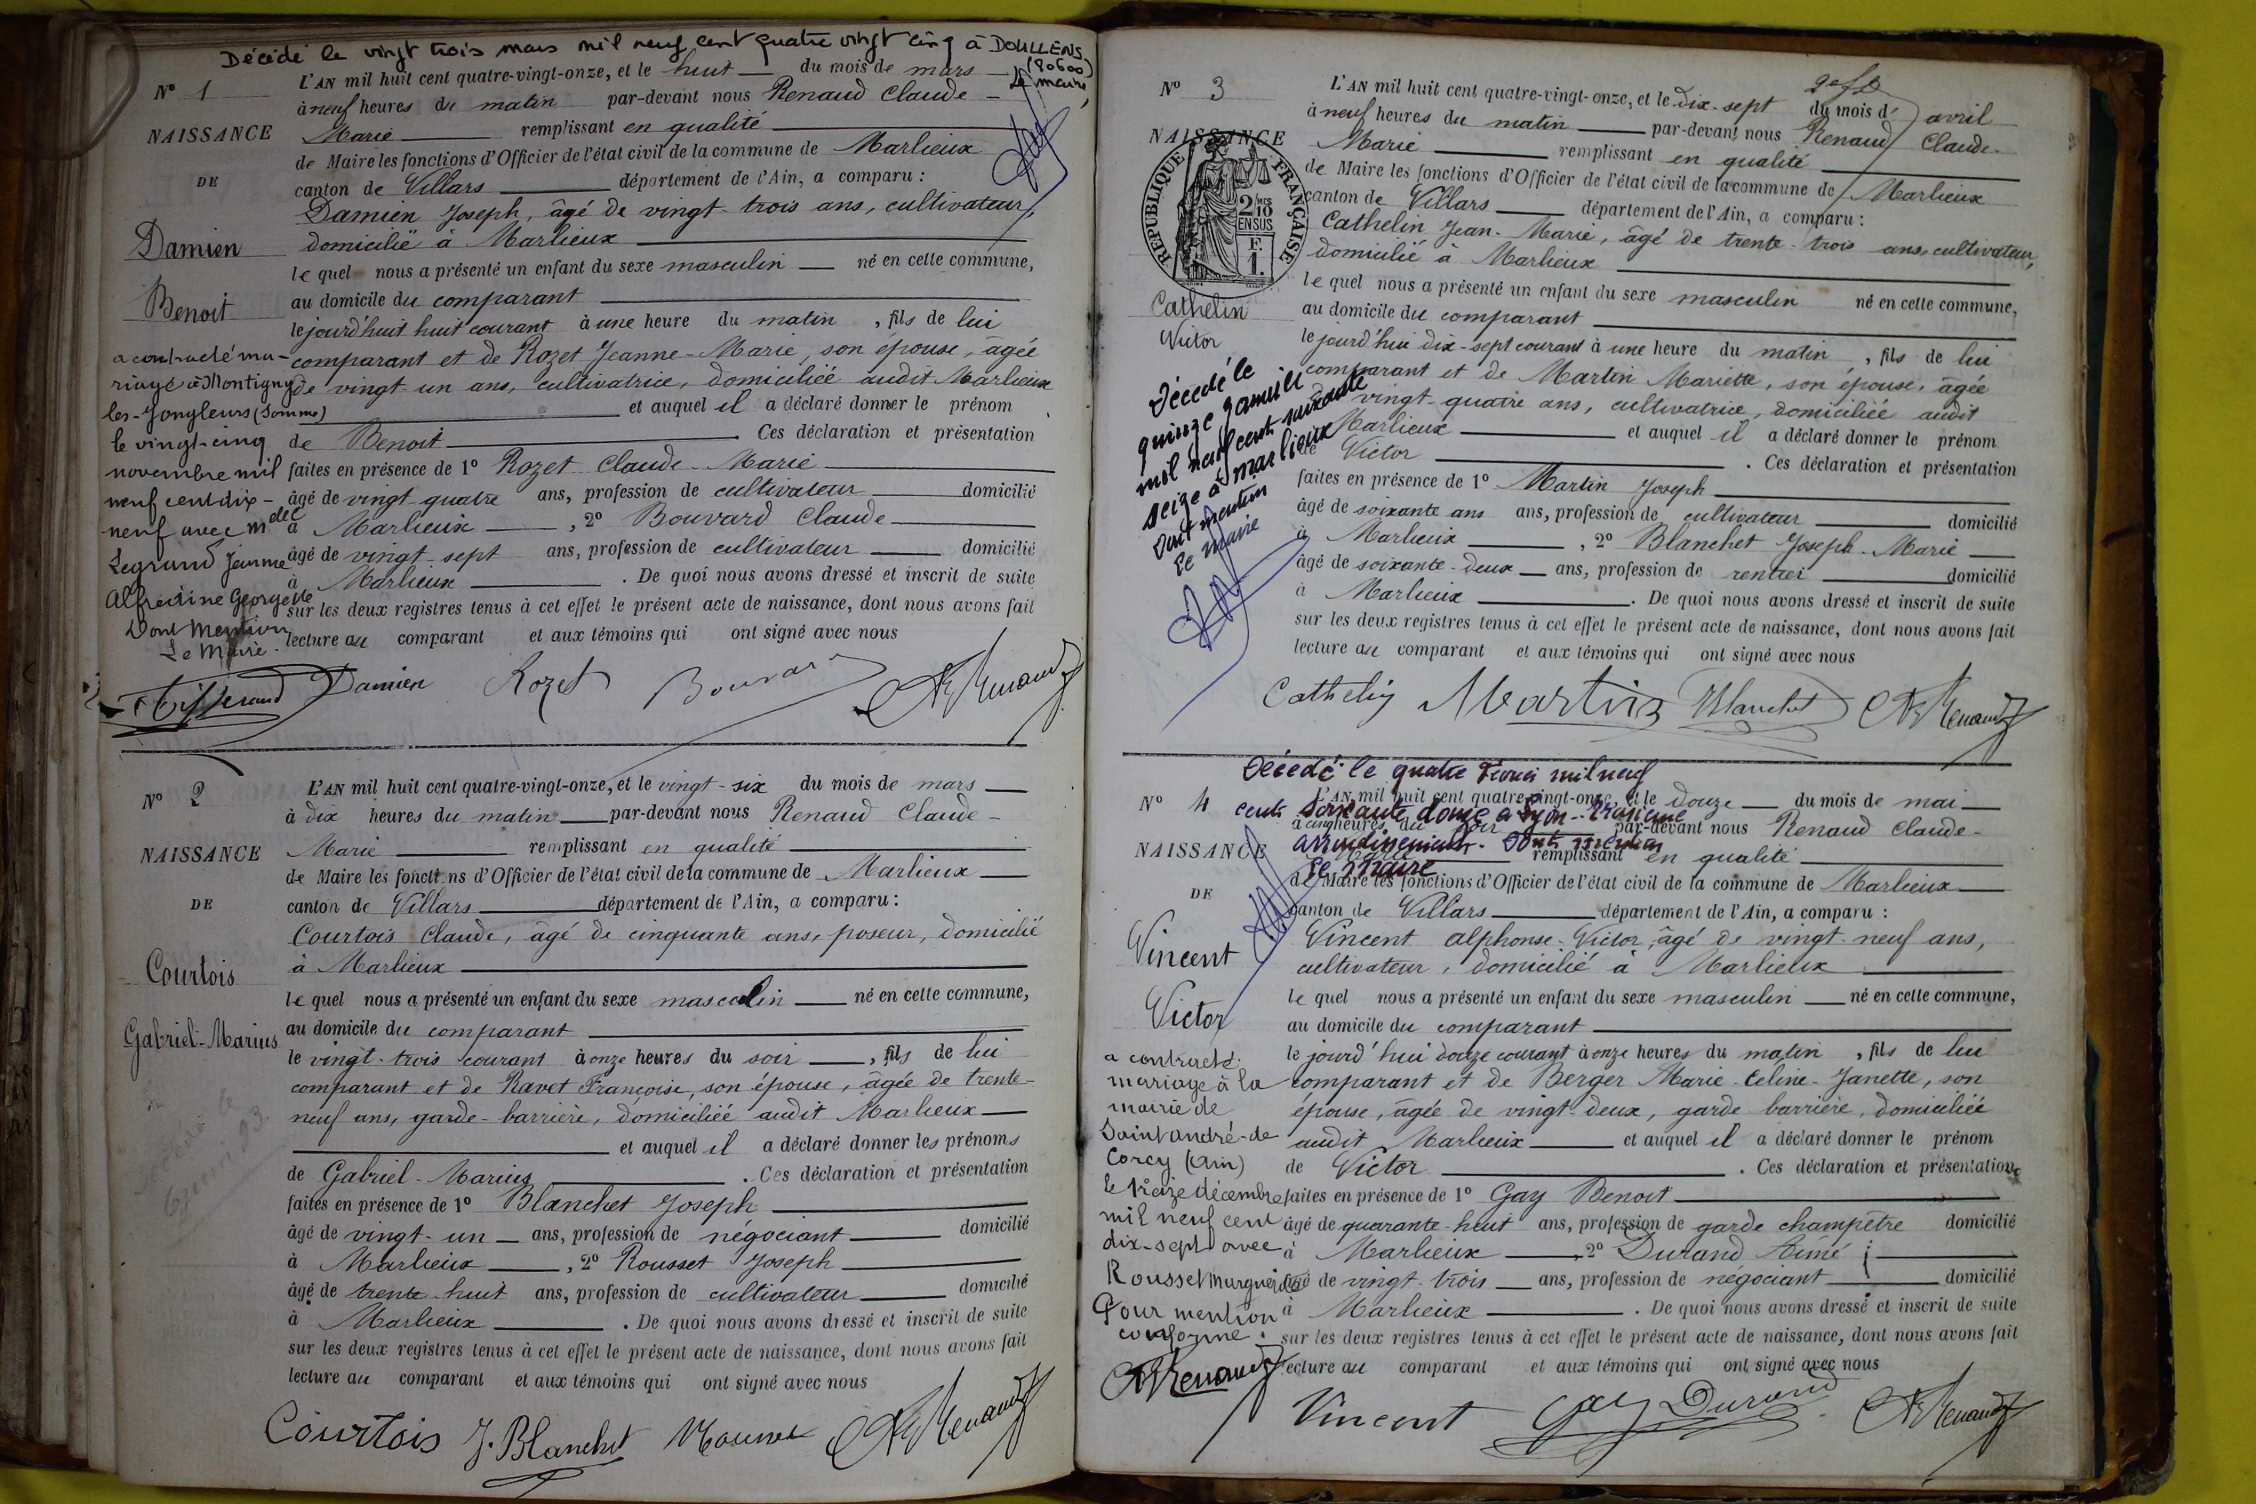 Décédé le vingt trois mars mil neuf cent quatre vingt cinq à DOULLENS
(80600)
Le maire,
N° 1
NAISSANCE
DE
Damien
Benoit
L'AN mil huit cent quatre-vingt-onze, et le huit du mois de mars
à neuf heures du matin par-devant nous Renaud Claude-
Marie remplissant en qualité
de Maire les fonctions d'Officier de l'état civil de la commune de Marlieux
canton de Villars département de l'Ain, a comparu :
Damien Joseph, âgé de vingt-trois ans, cultivateur,
domicilié à Marlieux
lequel nous a présenté un enfant du sexe masculin né en cette commune,
au domicile du comparant
le jourd'huit huit courant à une heure du matin, fils de lui
comparant et de Rozet Jeanne-Marie, son épouse, âgée
de vingt un ans, cultivatrice, domiciliée audit Marlieux
et auquel il a déclaré donner le prénom
de Benoit. Ces déclaration et présentation
faites en présence de 1° Rozet Claude-Marie
âgé de vingt-quatre ans, profession de cultivateur domicilié
à Marlieux, 2° Bouvard Claude
âgé de vingt-sept ans, profession de cultivateur domicilié
à Marlieux. De quoi nous avons dressé et inscrit de suite
sur les deux registres tenus à cet effet le présent acte de naissance, dont nous avons fait
lecture au comparant et aux témoins qui ont signé avec nous
a contracté ma-
riage à Montigny
les-Jongleurs (Somme)
le vingt-cinq
novembre mil
neuf cent dix-
neuf avec Mdelle
Legrand Jeanne
Alfrédine Georgette
Dont Mention
Le Maire.
Damien Rozet Bouvard Renaud
N° 2
NAISSANCE
DE
Courtois
Gabriel-Marius
L'AN mil huit cent quatre-vingt-onze, et le vingt-six du mois de mars
à dix heures du matin par-devant nous Renaud Claude-
Marie remplissant en qualité
de Maire les fonctions d'Officier de l'état civil de la commune de Marlieux
canton de Villars département de l'Ain, a comparu :
Courtois Claude, âgé de cinquante ans, poseur, domicilié
à Marlieux
lequel nous a présenté un enfant du sexe masculin né en cette commune,
au domicile du comparant
le vingt-trois courant à onze heures du soir, fils de lui
comparant et de Ravet Françoise, son épouse, âgée de trente-
neuf ans, garde-barrière, domiciliée audit Marlieux
et auquel il a déclaré donner les prénoms
de Gabriel-Marius. Ces déclaration et présentation
faites en présence de 1° Blanchet Joseph
âgé de vingt-un ans, profession de négociant domicilié
à Marlieux, 2° Rousset Joseph
âgé de trente-huit ans, profession de cultivateur domicilié
à Marlieux. De quoi nous avons dressé et inscrit de suite
sur les deux registres tenus à cet effet le présent acte de naissance, dont nous avons fait
lecture au comparant et aux témoins qui ont signé avec nous
Courtois J. Blanchet Renaud
N° 3
NAISSANCE
RÉPUBLIQUE FRANÇAISE
2/10
EN SUS
F.
1.
Cathelin
Victor
L'AN mil huit cent quatre-vingt-onze, et le dix-sept du mois d'avril
à neuf heures du matin par-devant nous Renaud Claude-
Marie remplissant en qualité
de Maire les fonctions d'Officier de l'état civil de la commune de Marlieux
canton de Villars département de l'Ain, a comparu :
Cathelin Jean-Marie, âgé de trente-trois ans, cultivateur,
domicilié à Marlieux
lequel nous a présenté un enfant du sexe masculin né en cette commune,
au domicile du comparant
le jourd'hui dix-sept courant à une heure du matin, fils de lui
comparant et de Martin Mariette, son épouse, âgée
vingt-quatre ans, cultivatrice, domiciliée audit
Marlieux et auquel il a déclaré donner le prénom
de Victor. Ces déclaration et présentation
faites en présence de 1° Martin Joseph
âgé de soixante ans ans, profession de cultivateur domicilié
à Marlieux, 2° Blanchet Joseph-Marie
âgé de soixante-deux ans, profession de rentier domicilié
à Marlieux. De quoi nous avons dressé et inscrit de suite
sur les deux registres tenus à cet effet le présent acte de naissance, dont nous avons fait
lecture au comparant et aux témoins qui ont signé avec nous
Décédé le
quinze janvier
mil neuf cent soixante
seize à Marlieux
Dont mention
Le Maire
Cathelin Martin Blanchet Renaud
Décédé le quatre février mil neuf
cent soixante douze à Lyon-troisième
arrondissement. Dont mention
Le Maire
N° 4
NAISSANCE
DE
Vincent
Victor
L'AN mil huit cent quatre-vingt-onze, et le douze du mois de mai
à cinq heures du soir par-devant nous Renaud Claude-
Marie remplissant en qualité
de Maire les fonctions d'Officier de l'état civil de la commune de Marlieux
canton de Villars département de l'Ain, a comparu :
Vincent Alphonse-Victor, âgé de vingt-neuf ans,
cultivateur, domicilié à Marlieux
lequel nous a présenté un enfant du sexe masculin né en cette commune,
au domicile du comparant
le jourd'hui douze courant à onze heures du matin, fils de lui
comparant et de Berger Marie-Celine-Janette, son
épouse, âgée de vingt-deux, garde barrière, domiciliée
audit Marlieux et auquel il a déclaré donner le prénom
de Victor. Ces déclaration et présentation
faites en présence de 1° Gay Benoit
âgé de quarante-huit ans, profession de garde champêtre domicilié
à Marlieux, 2° Durand Aimé
âgé de vingt-trois ans, profession de négociant domicilié
à Marlieux. De quoi nous avons dressé et inscrit de suite
sur les deux registres tenus à cet effet le présent acte de naissance, dont nous avons fait
lecture au comparant et aux témoins qui ont signé avec nous
a contracté
mariage à la
mairie de
Saint André-de
Corcy (Ain)
le treize décembre
mil neuf cent
dix-sept avec
Rousset Marguerite
Pour mention
conforme.
Renaud
Vincent Gay Durand Renaud